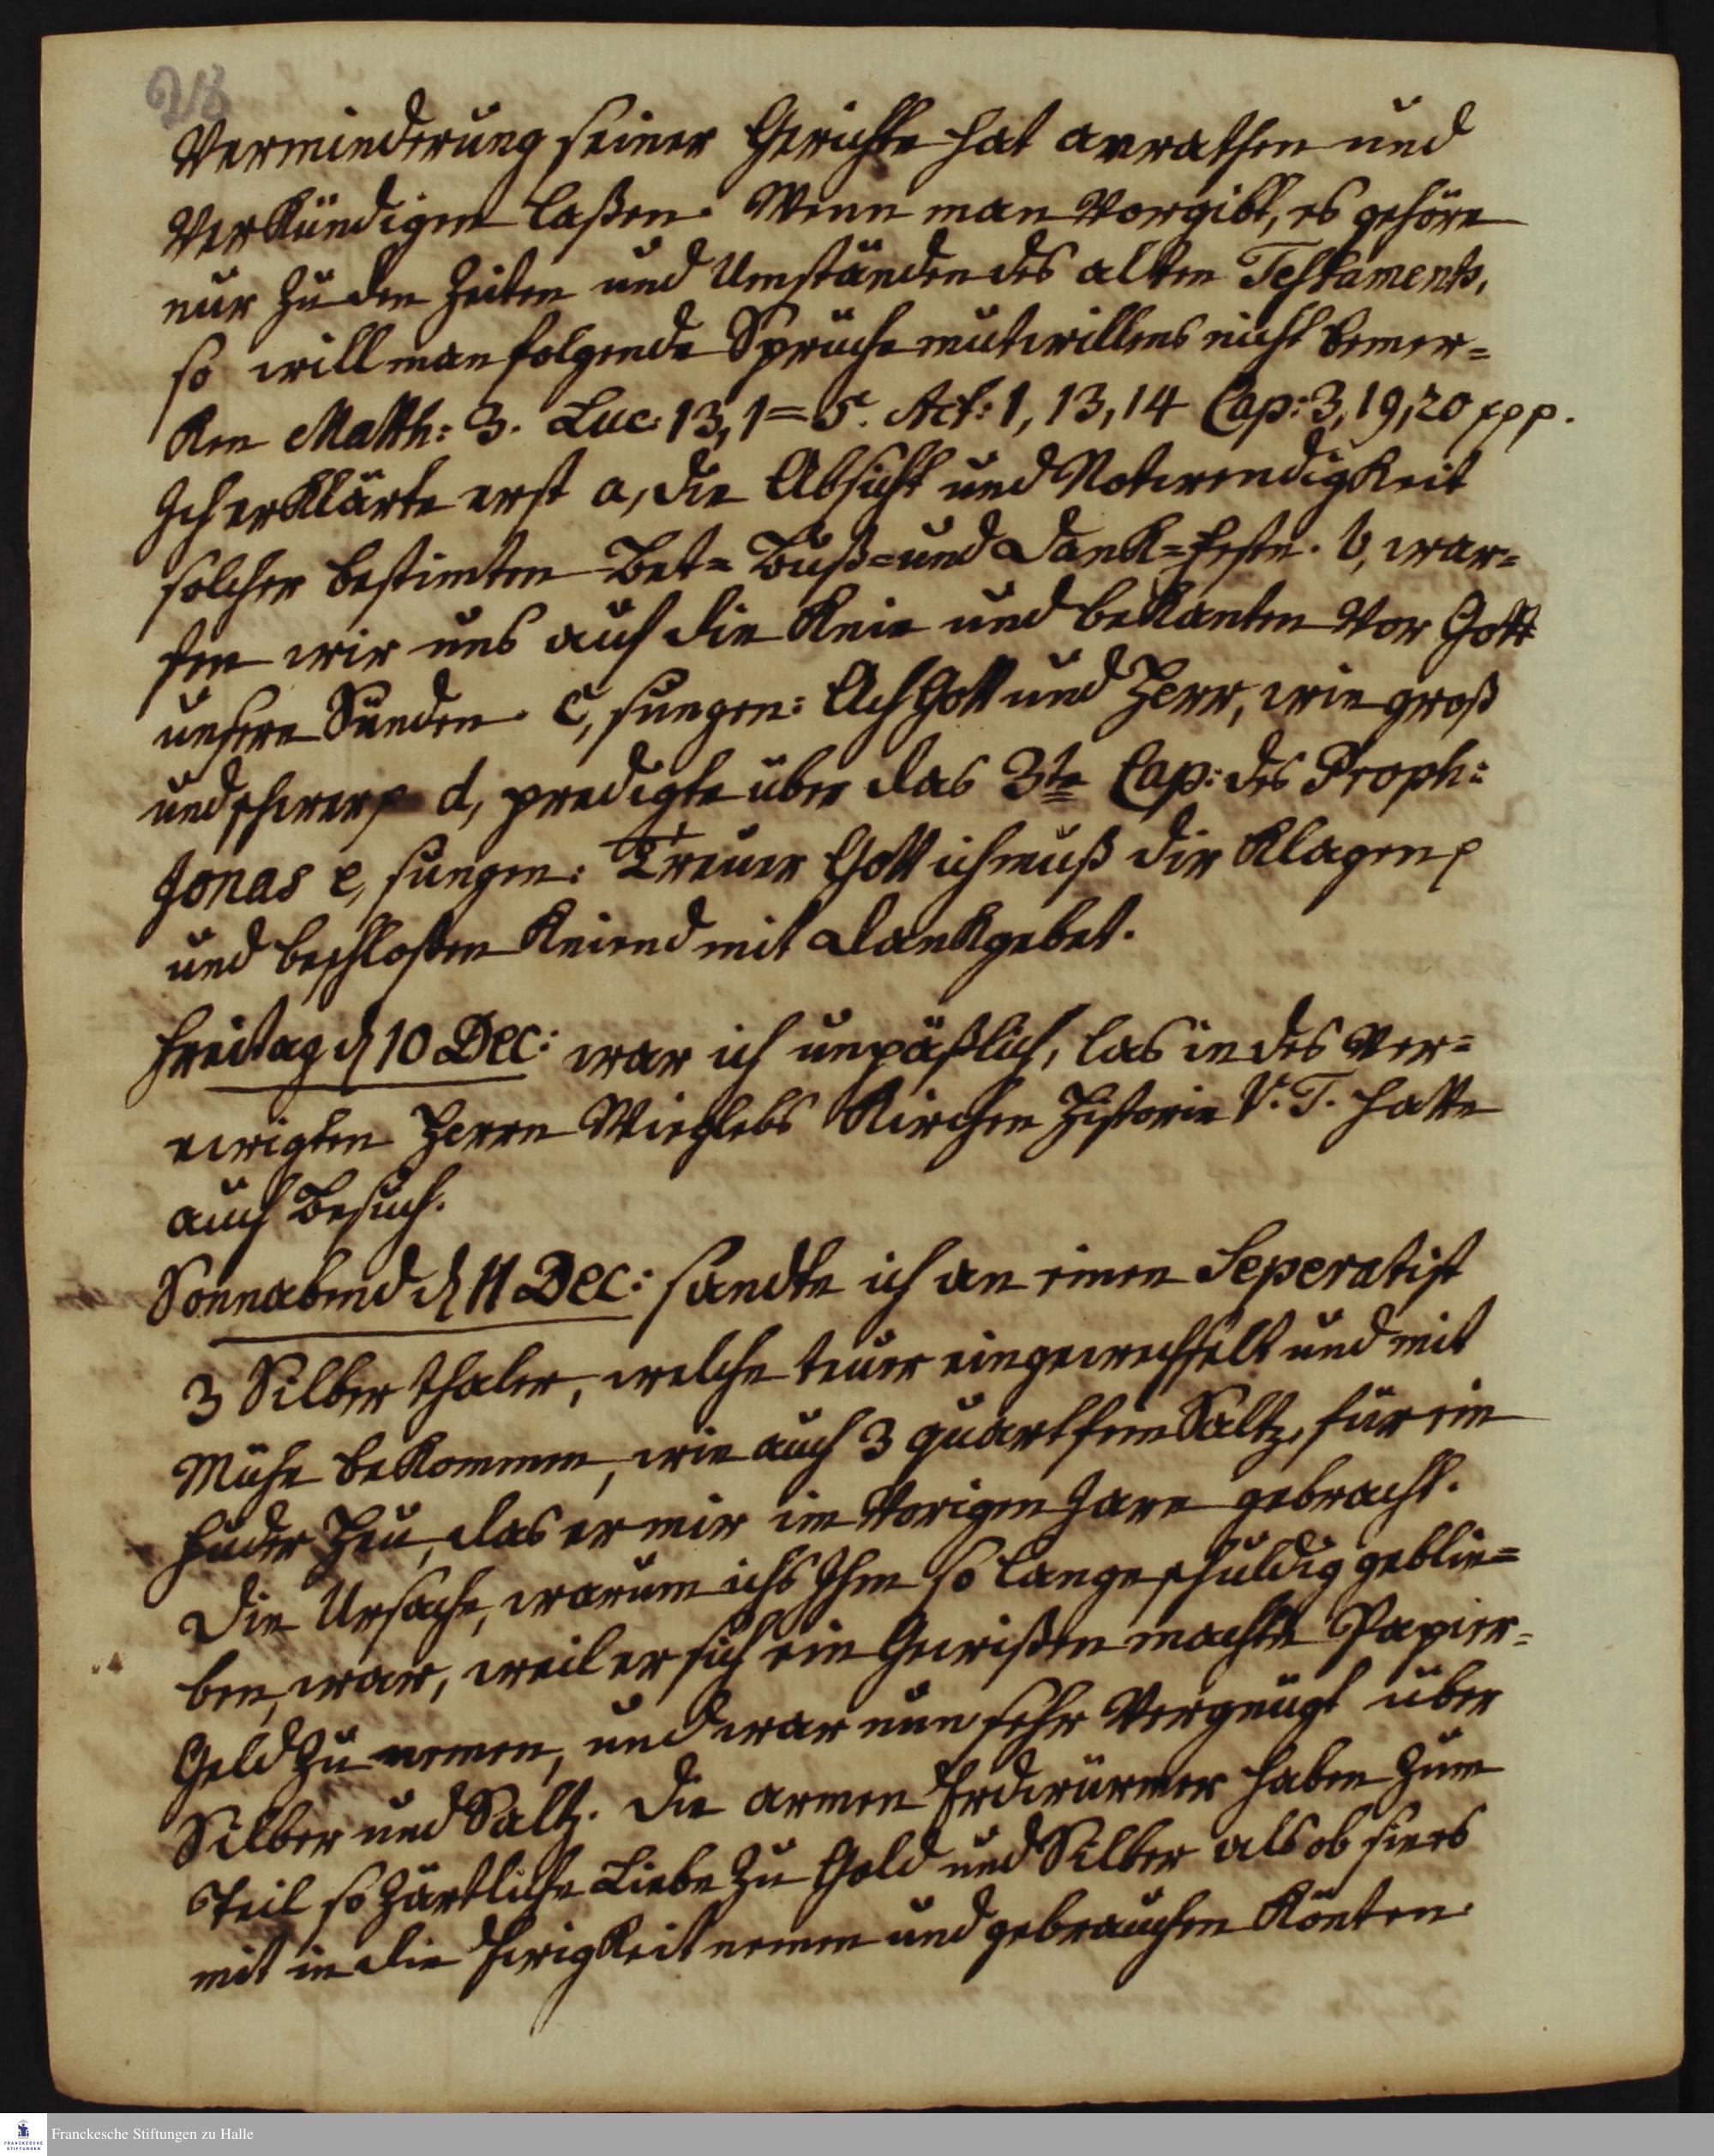 28
Verminderung seiner Gerichte hat anrathen und
Verkündigen laßen. Wenn man Vorgibt, es gehöre
nur zu den Zeiten und Umständen des alten Testaments,
so will man folgende Sprüche mutwillens nicht bemer=
ken Matth: 3. Luc: 13, 1=5. Act: 1, 13, 14 Cap: 3, 19, 20 ppp.
Ich erklärte erst a, die Absicht und Notwendigkeit
solcher bestimten Bet= Buß= und Dank=Feste. b, war=
fen wir uns auf die Knie und bekanten Vor Gott
unsere Sünden. c, sungen: Ach Gott und Herr, wie groß
und schwer p d, predigte über das 3te Cap: des Proph:
Jonas e, sungen: Treuer Gott ich muß dir klagen p
und beschloßen kniend mit Dankgebet.
Freitag d 10 Dec: war ich unpäßlich, las in des Ver=
ewigten Herrn Mieglebs Kirchen Historie V. T. hatte
auch Besuch.
Sonnabend d 11 Dec: sandte ich an einen Seperatist
3 Silber thaler, welche teuer eingewechselt und mit
Mühe bekommen, wie auch 3 quart fein Saltz, für ein
Fuder Heu, das er mir im Vorigen Jare gebracht.
Die Ursache, warum ichs Ihm so lange schuldig geblie=
ben, war, weil er sich ein Gewißen machte Papier=
Geld zu nemen, und war nun sehr Vergnügt über
Silber und Saltz. Die armen Erdwürmer haben zum
Teil so zärtliche Liebe zu Gold und Silber als ob sies
mit in die Ewigkeit nemen und gebrauchen könten.
Franckesche Stiftungen zu Halle
FRANCKESCHE
STIFTUNGEN